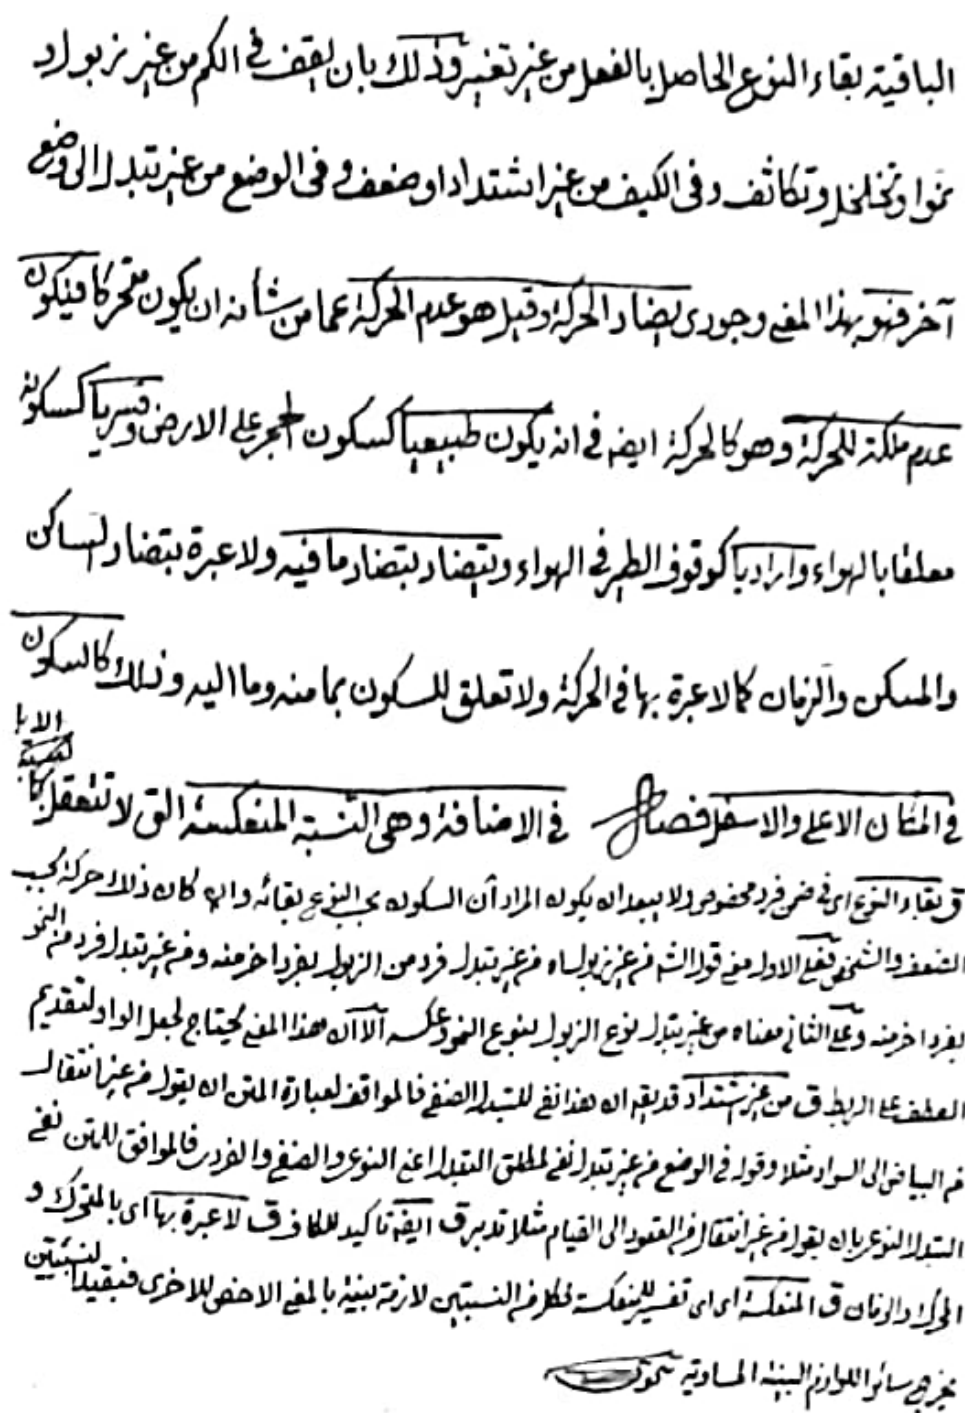 الباقية بقاء النوع الحاصل بالفعل من غير تغير وذلك بان يقف في الكم من غير ذبول او
نمو او تخلخل وتكاثف وفي الكيف من غير اشتداد او ضعف وفي الوضع من غير تبدل الى وضع
آخر فهو بهذا المعنى وجودى يضاد الحركة وقيل هو عدم الحركة عما من شأنه ان يكون متحركا فيكون
عدم ملكة للحركة وهو كالحركة ايضا في انه يكون طبيعيا كسكون الحجر على الارض وقسريا كسكونه
معلقا بالهواء واراديا كوقوف الطير في الهواء ويتضاد بتضاد ما فيه ولا عبرة بتضاد الساكن
والمسكن والزمان كما لا عبرة بها في الحركة ولا تعلق للسكون بما منه وما اليه وذلك كالسكون
في المكان الاعلى والاسفل فصل في الاضافة وهى النسبة المنعكسة التى لا تتعقل الا با لنسبة
ق بقاء النوع اى في ضمن فرد مخصوص ولا يبعد ان يكون المراد أن السكون بحسب النوع بقائه وان كان ذلك حركة بحسب
الصنف والشخص فعلى الاول معنى قول الشم من غير ذبول اه من غير تبدل فرد من الذبول بفرد اخر منه ومن غير تبدل فرد من النمو
بفرد اخر منه وعلى الثانى معناه من غير تبدل نوع الذبول بنوع النمو وعكسه الا ان هذا المعنى يحتاج لجعل الواو لتقديم
العطف على الربط ق من غير اشتداد قد يقه ان هذا نفى للتبدل الصنفى فالموافق لعبارة المتن ان يقول من غير انتقال
من البياض الى السواد مثلا وقوله في الوضع من غير تبدل نفى لمطلق التبدل اعنى النوعى والصنفى والفردى فالموافق للمتن نفى
التبدل النوعى بان يقول من غير انتقال من القعود الى القيام مثلا تدبر ق ايضه تاكيد للكاف ق لا عبرة بها اى بالمتحرك و
المحرك والزمان ق المنعكسة اى اى تفسير للمنعكسة لكل من النسبتين لازمة بينة بالمعنى الاخص للاخرى فبقيد النسبتين
يخرج سائر اللوازم البينة المساوية